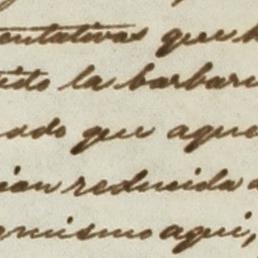 entativas que h
tido la barbari
ado que aque
ian reducida a
mismo aqui,